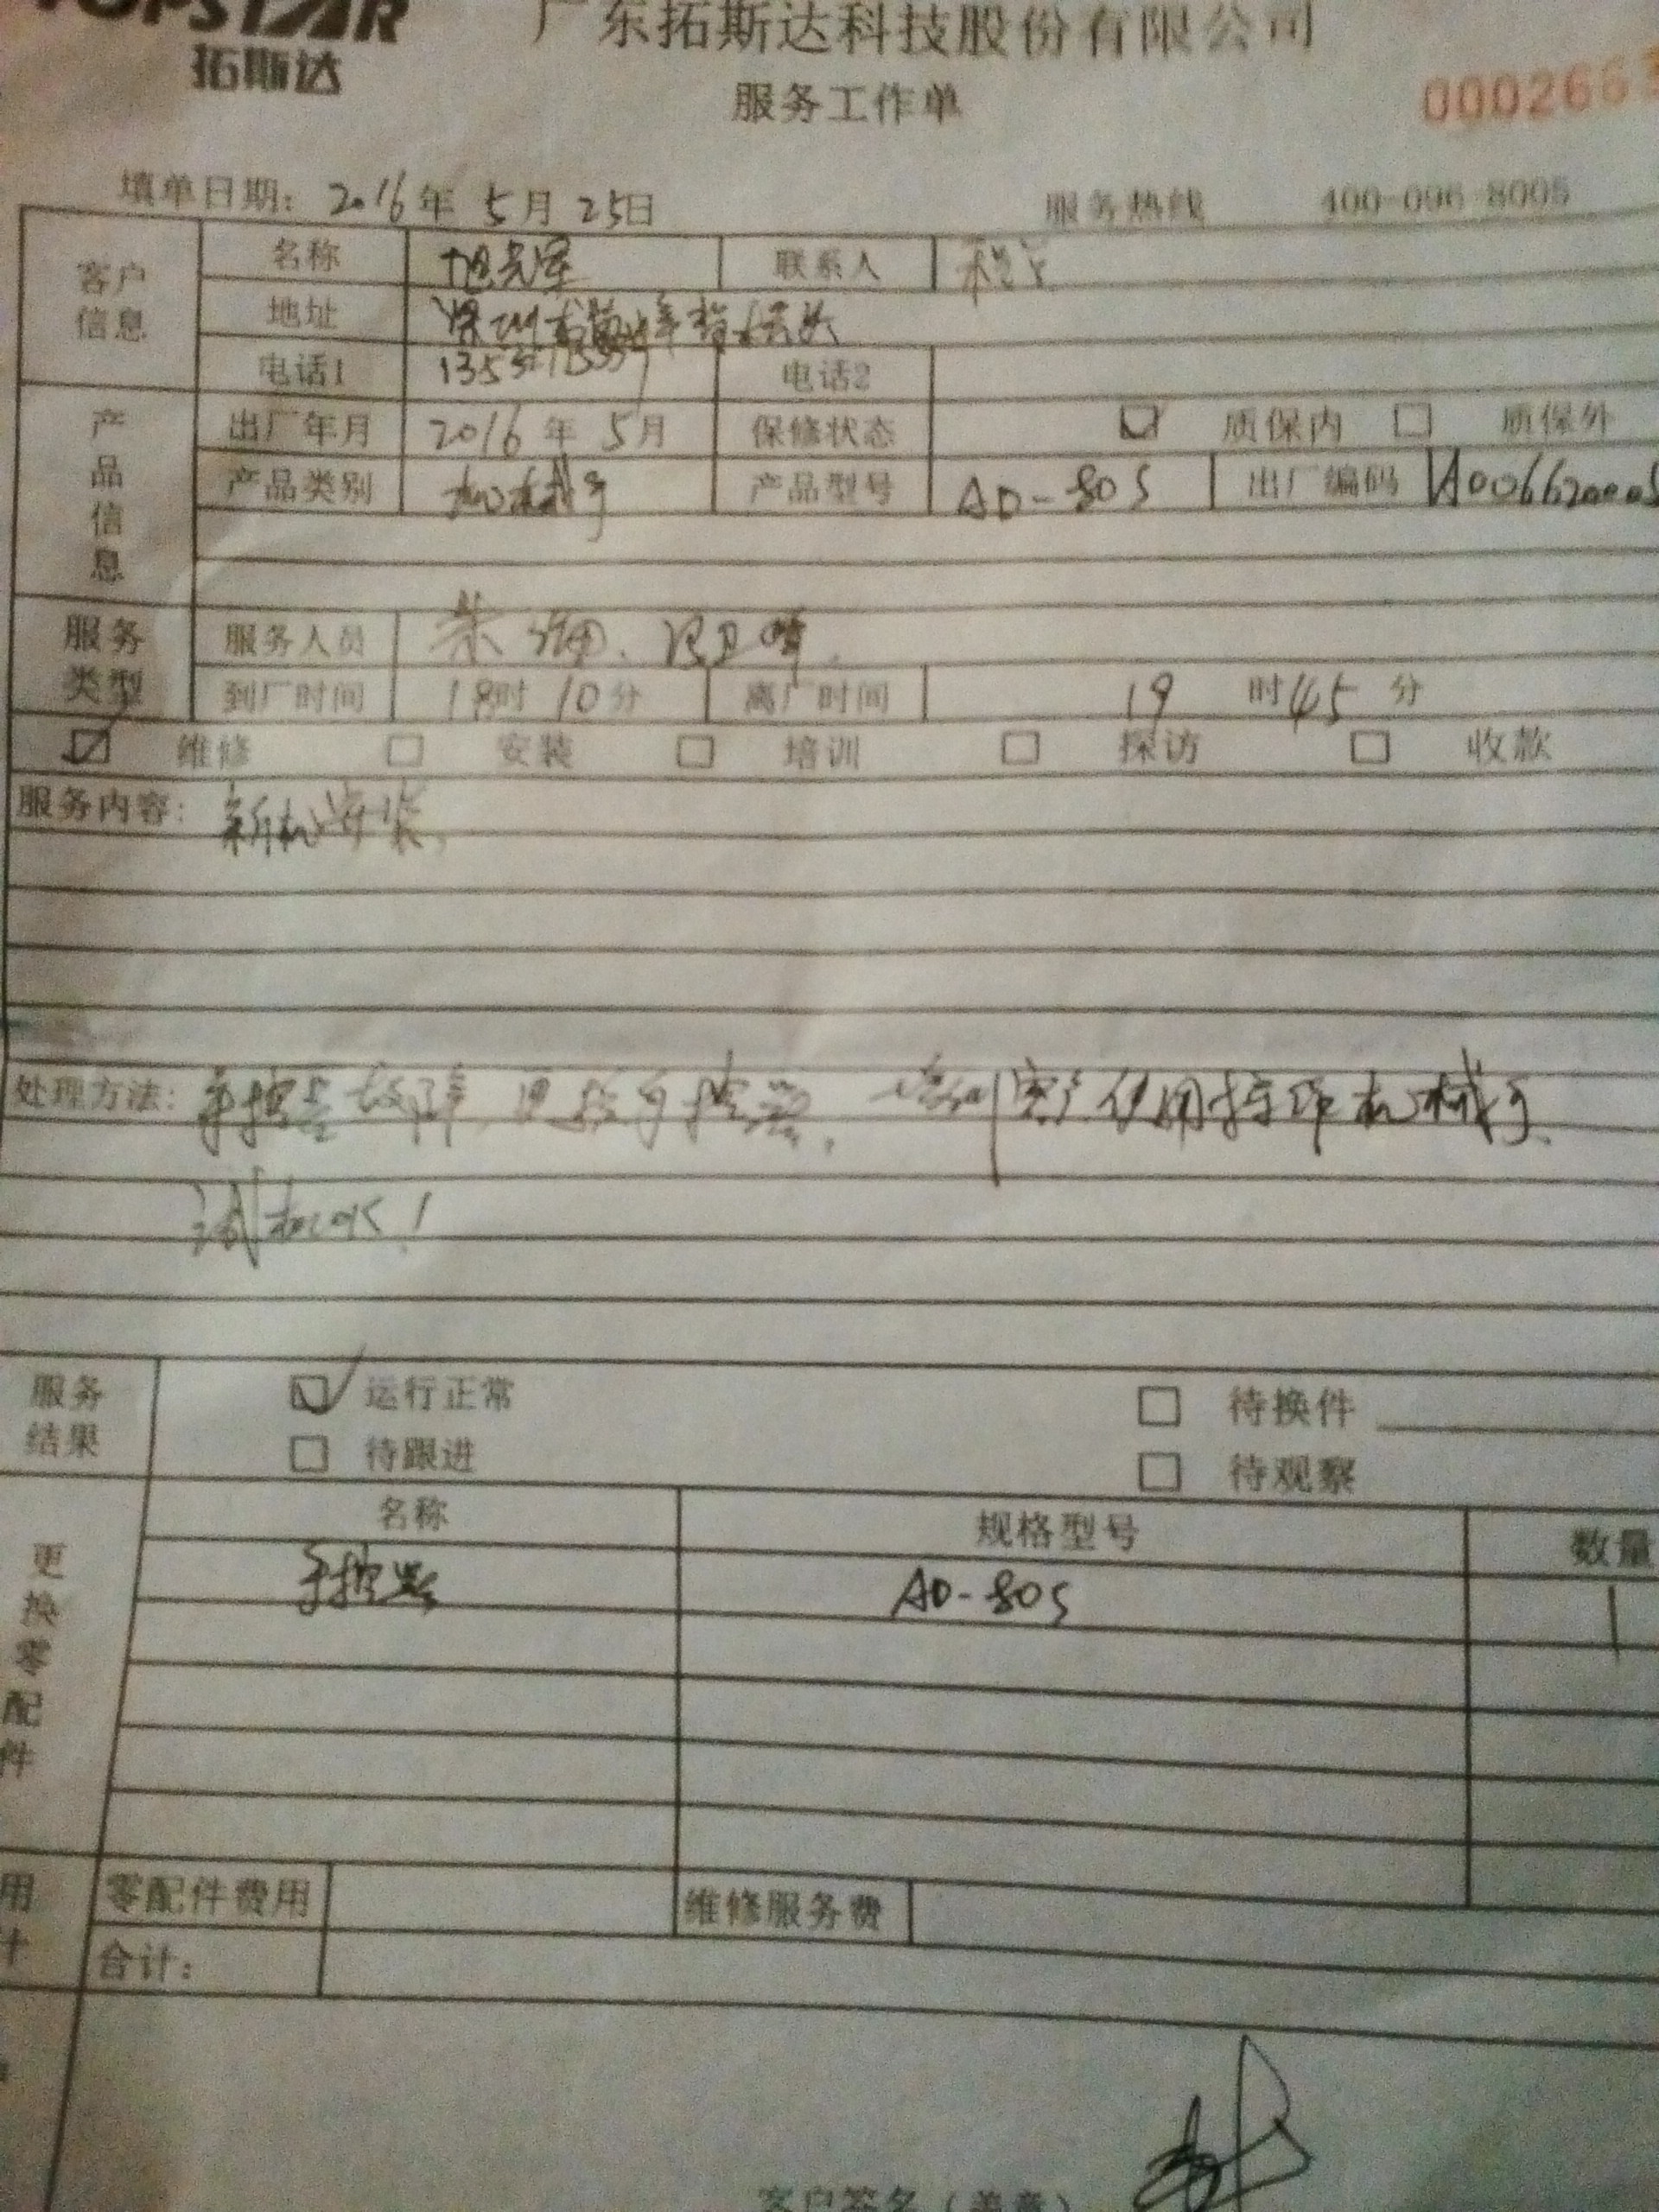 TOPSTAR
拓斯达
广东拓斯达科技股份有限公司
服务工作单
000266
填单日期: 2016年 5月 25日 服务热线 400-096-8005
客户信息
名称 旭 联系人
地址 深圳
电话1 电话2
产品信息
出厂年月 2016年 5月 保修状态 质保内 质保外
产品类别 机械手 产品型号 AD-80S 出厂编码
服务类型
服务人员 朱
到厂时间 18时 10分 离厂时间 19 时 45 分
维修 安装 培训 探访 收款
服务内容: 新机安装。
处理方法: 手控器故障,更换手控器。培训客户使用操作机械手、
试机OK!
服务结果
运行正常 待换件
待跟进 待观察
更换零配件
名称 规格型号 数量
手控器 AD-80S 1
用 零配件费用 维修服务费
计 合计:
客户签名(盖章)